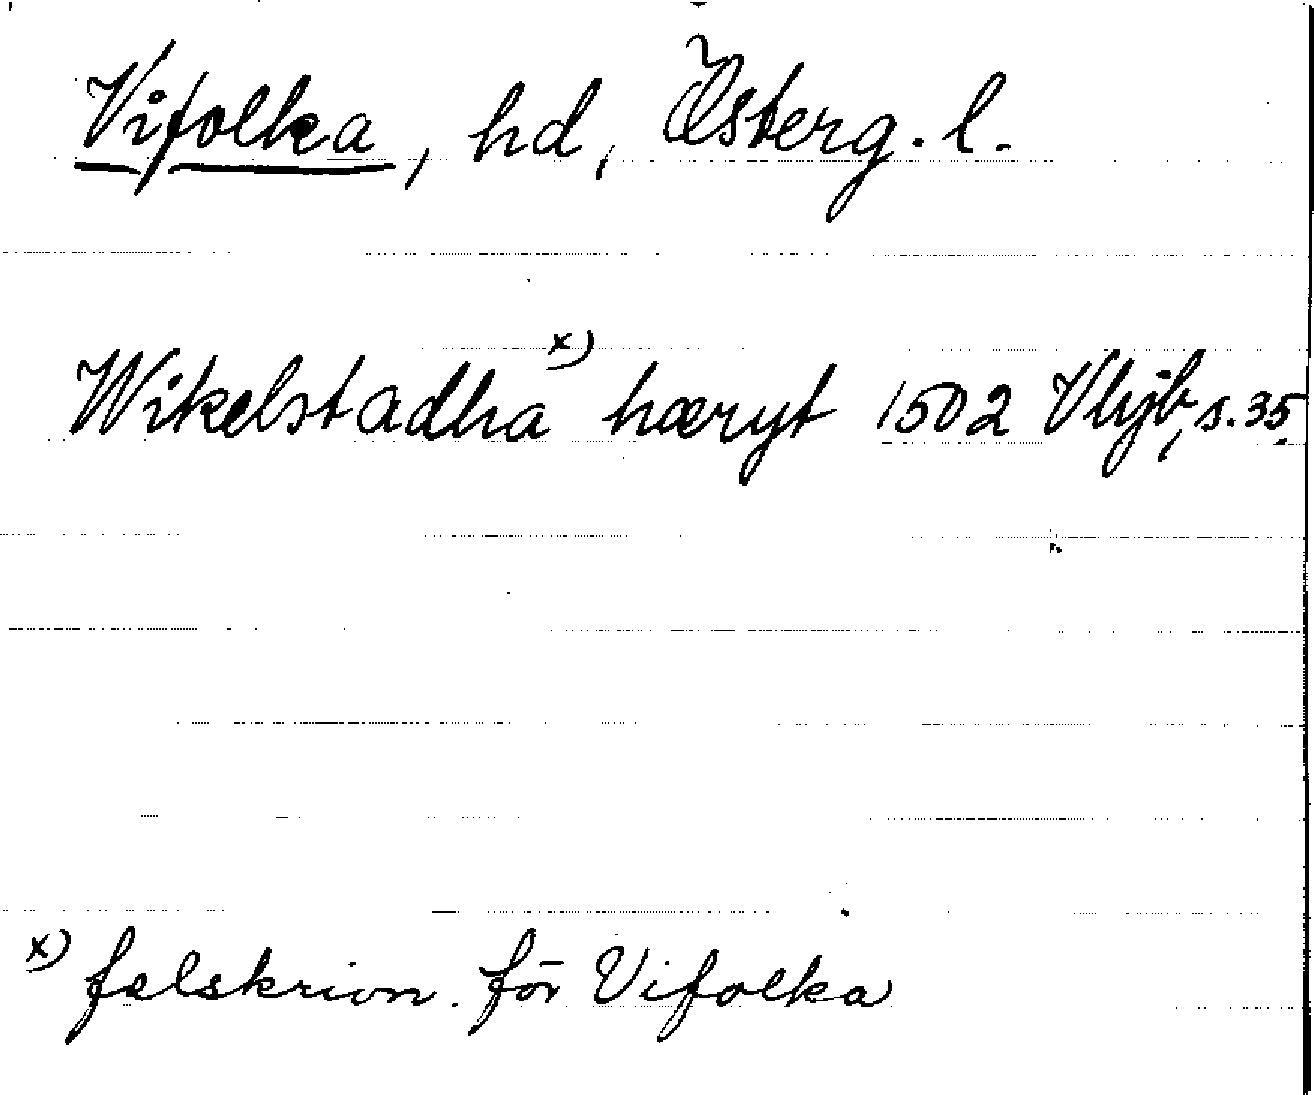 Vifolka, hd, Österg. l.
Wikelstadha x) hæryt 1502 Vhjb, s. 35
x) felskrivn. för Vifolka